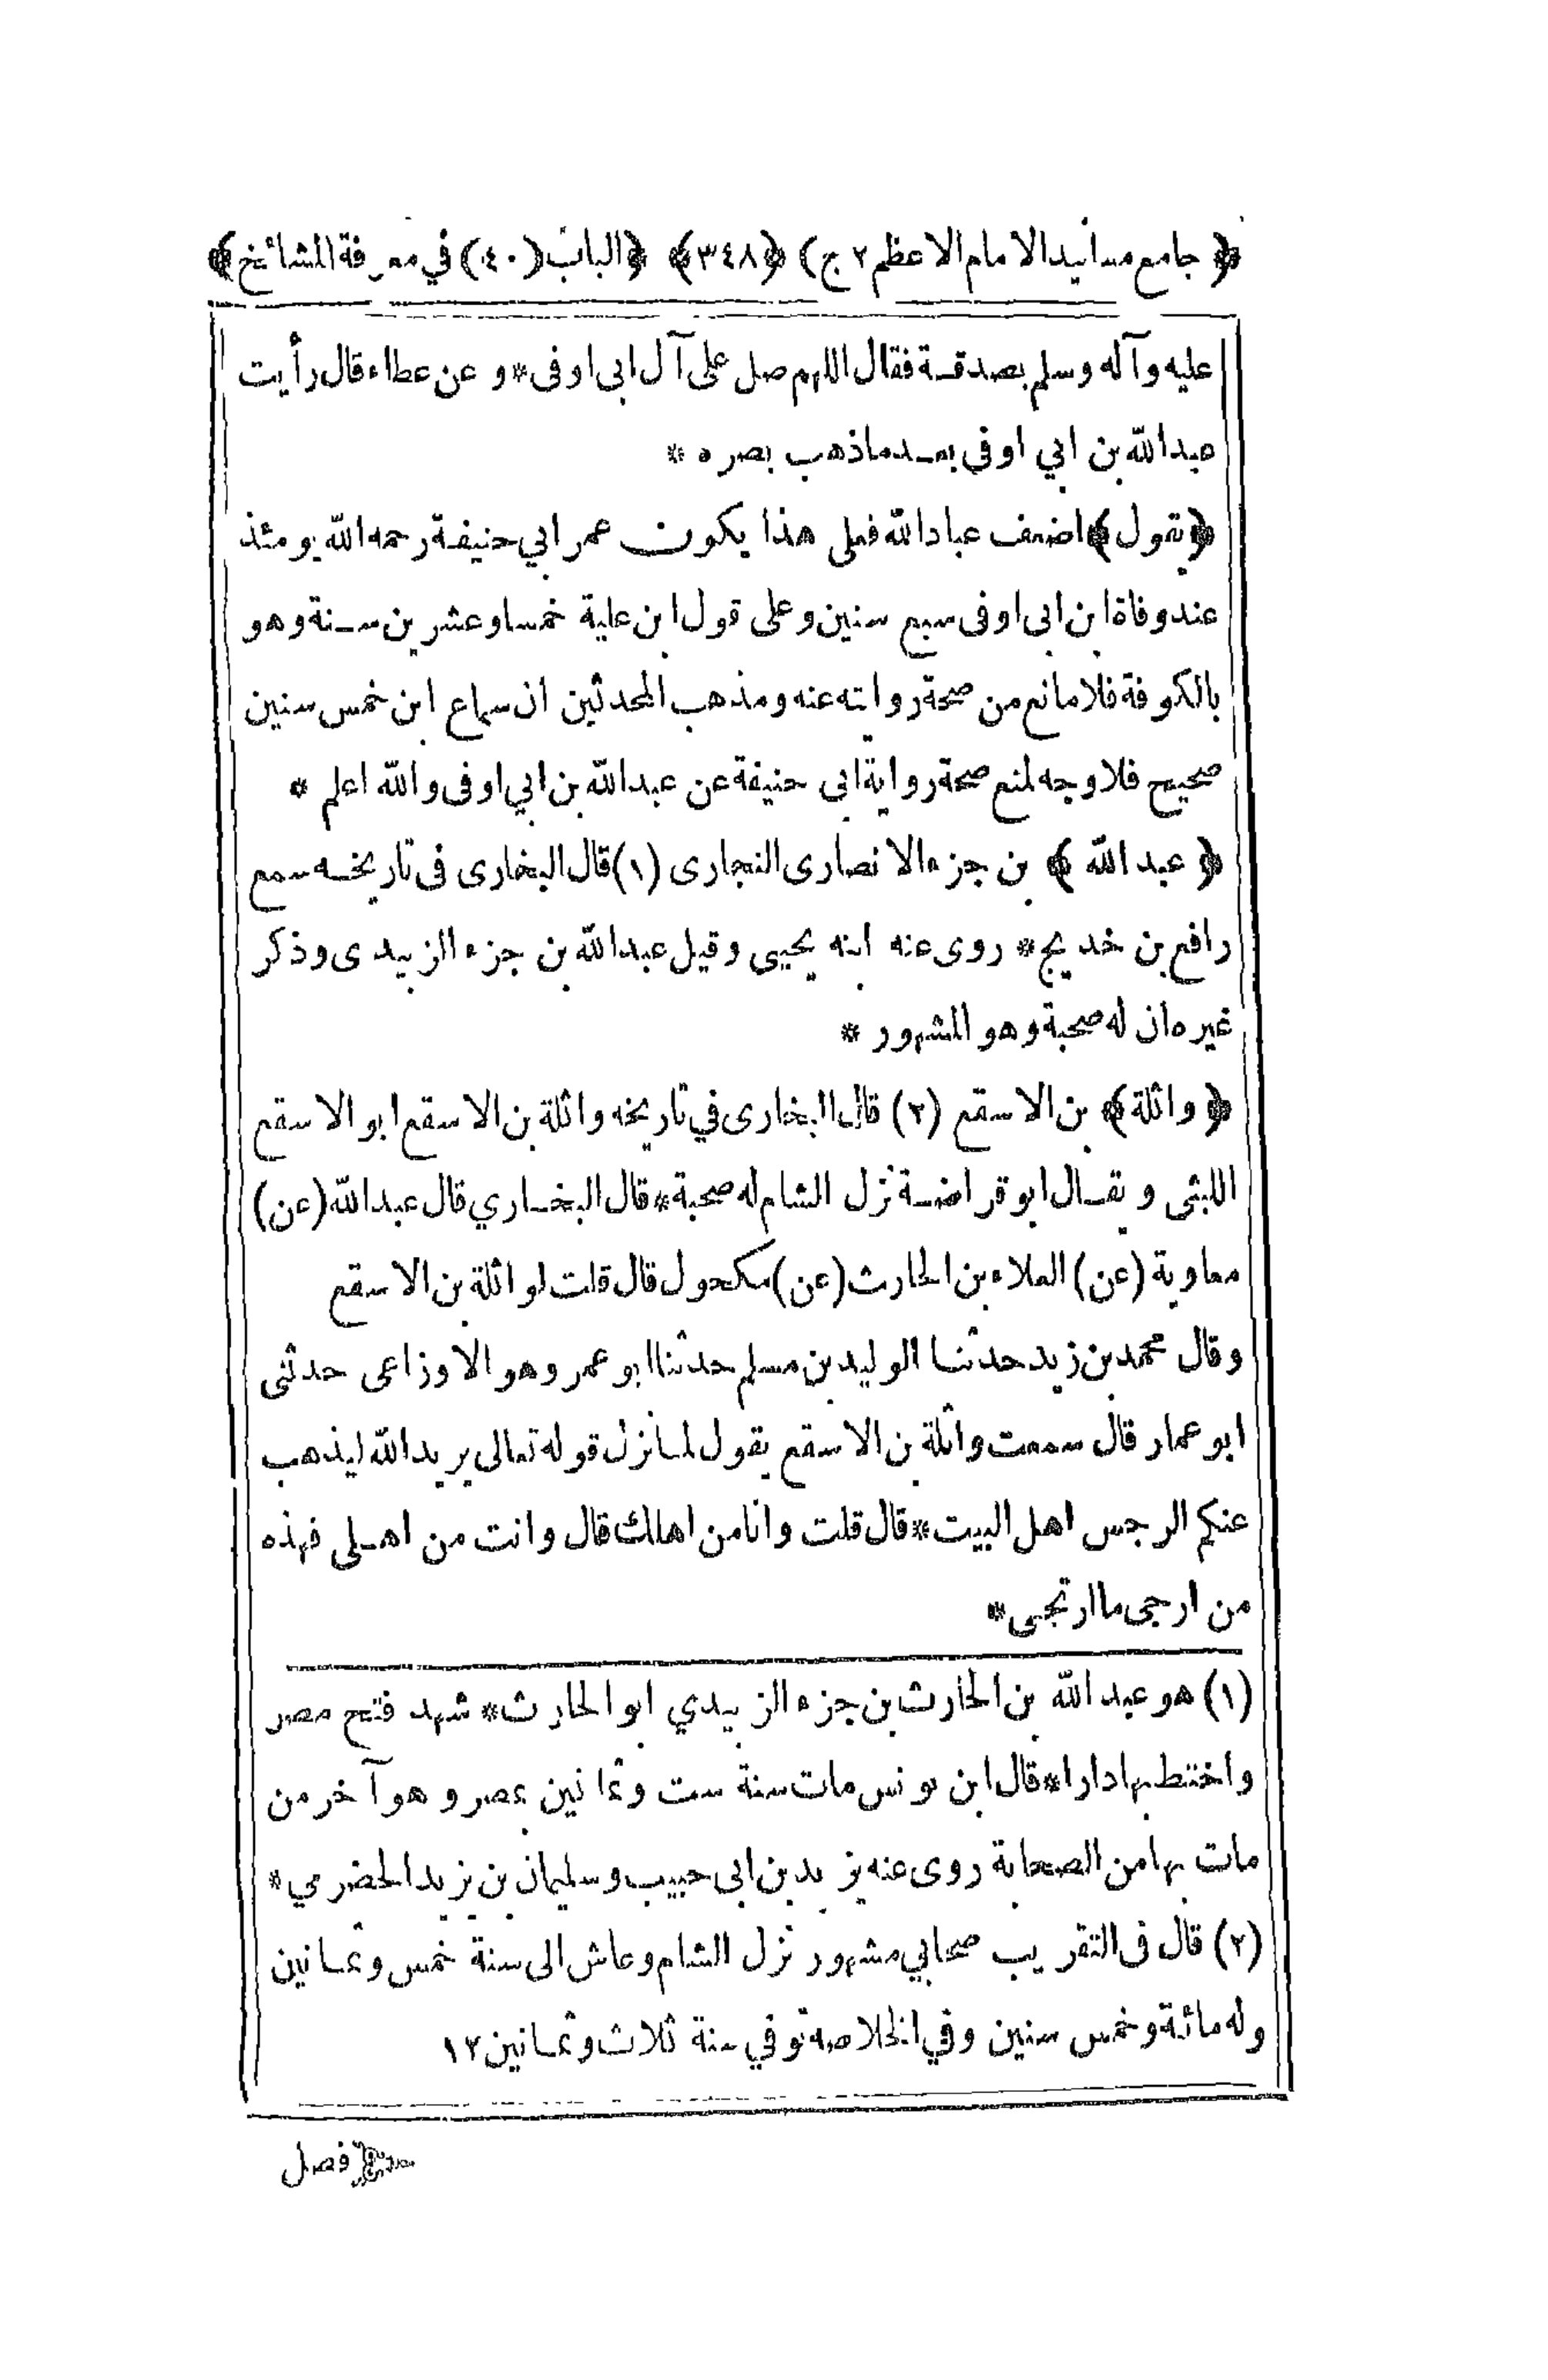 ﴿ جامع مسانيد الامام الاعظم ٢ ج ﴾ ﴿ ٣٤٨ ﴾ ﴿ الباب (٤٠) في معرفة المشائخ ﴾
عليه وآله وسلم بصدقة فقال اللهم صل على آل ابى اوفى * و عن عطاء قال رأيت
عبدالله بن ابي اوفى بعدما ذهب بصره *
﴿ يقول ﴾ اضعف عبادالله فعلى هذا يكون عمر ابي حنيفة رحمه الله يومئذ
عند وفاة ابن ابى اوفى سبع سنين وعلى قول ابن علية خمسا وعشرين سنة وهو
بالكوفة فلا مانع من صحة روايته عنه ومذهب المحدثين ان سماع ابن خمس سنين
صحيح فلا وجه لمنع صحة رواية ابى حنيفة عن عبدالله بن ابي اوفى والله اعلم *
﴿ عبد الله ﴾ بن جزء الانصارى النجارى (١) قال البخارى فى تاريخه سمع
رافع بن خديج * روى عنه ابنه يحيى وقيل عبدالله بن جزء الزبيدى وذكر
غيره ان له صحبة وهو المشهور *
﴿ واثلة ﴾ بن الاسقع (٢) قال البخارى في تاريخه واثلة بن الاسقع ابو الاسقع
الليثى ويقال ابو قراضة نزل الشام له صحبة * قال البخاري قال عبدالله (عن)
معاوية (عن) العلاء بن الحارث (عن) مكحول قال قلت لواثلة بن الاسقع
وقال محمد بن زيد حدثنا الوليد بن مسلم حدثنا ابو عمر وهو الاوزاعى حدثنى
ابو عمار قال سمعت واثلة بن الاسقع يقول لما نزل قوله تعالى يريد الله ليذهب
عنكم الرجس اهل البيت * قال قلت وانا من اهلك قال وانت من اهلى فهذه
من ارجى ما ارتجى *
(١) هو عبد الله بن الحارث بن جزء الزبيدي ابو الحارث * شهد فتح مصر
واختط بها دارا * قال ابن يونس مات سنة ست وثمانين بمصر وهو آخر من
مات بها من الصحابة روى عنه يزيد بن ابى حبيب وسليمان بن يزيد الحضرمي *
(٢) قال فى التقريب صحابي مشهور نزل الشام وعاش الى سنة خمس وثمانين
وله مائة وخمس سنين وفي الخلاصة توفي سنة ثلاث وثمانين ١٢
فصل